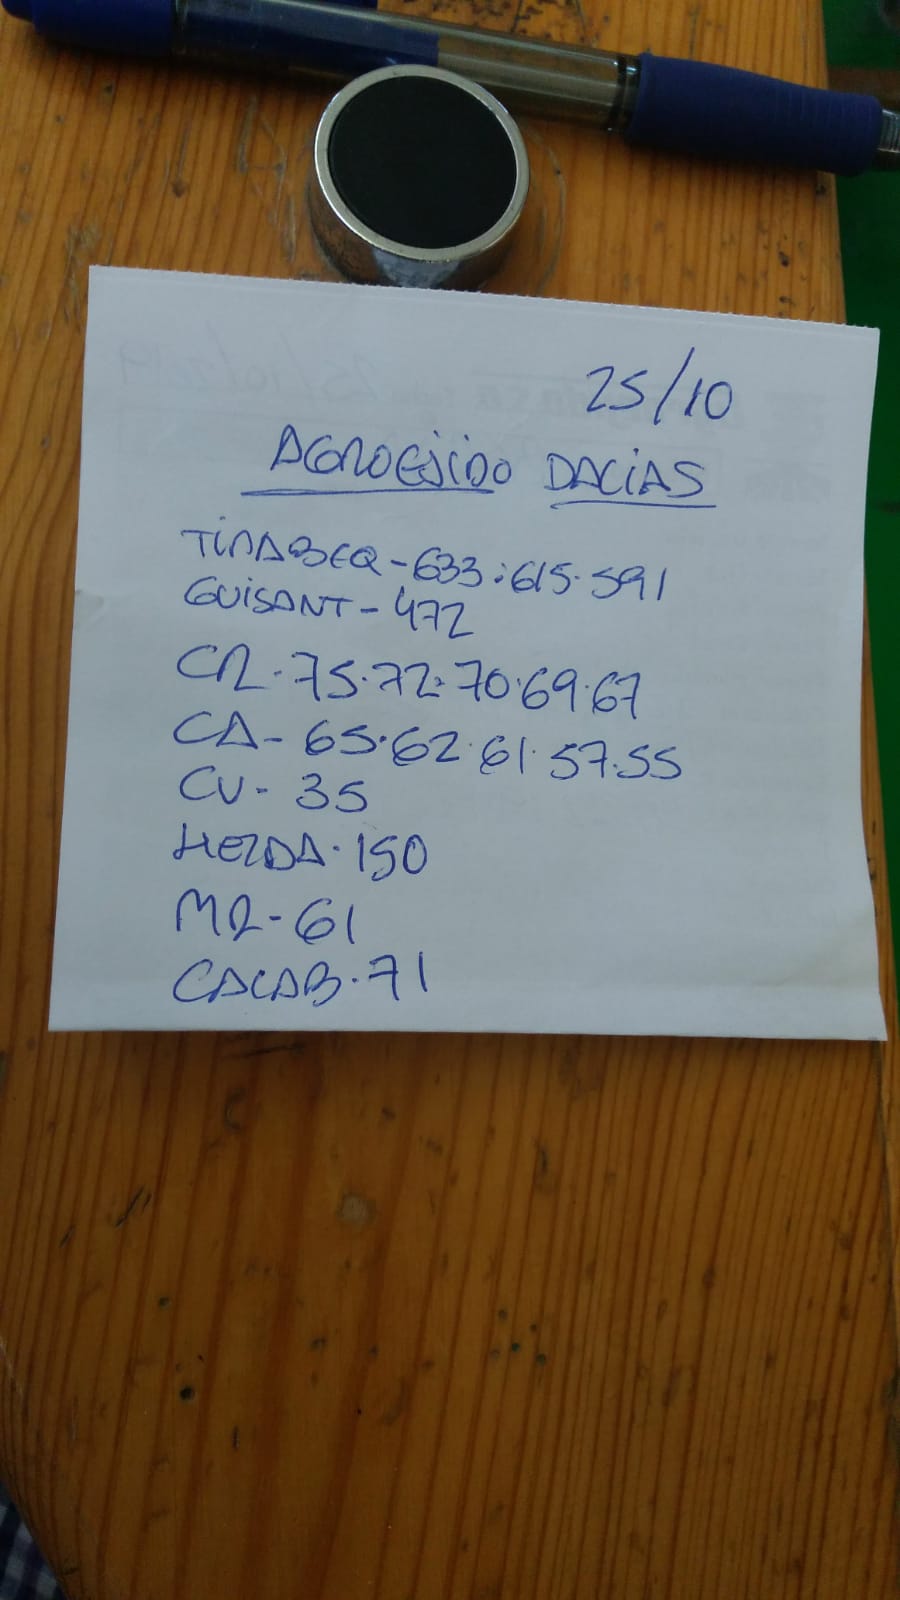 25/10
AGROEJIDO DALIAS
TIRABEQ-633.615.591
GUISANT-472
CR-75.72.70.69.67
CA-65.62.61.57.55
CV-35
HERDA.150
MR-61
CALAB.71